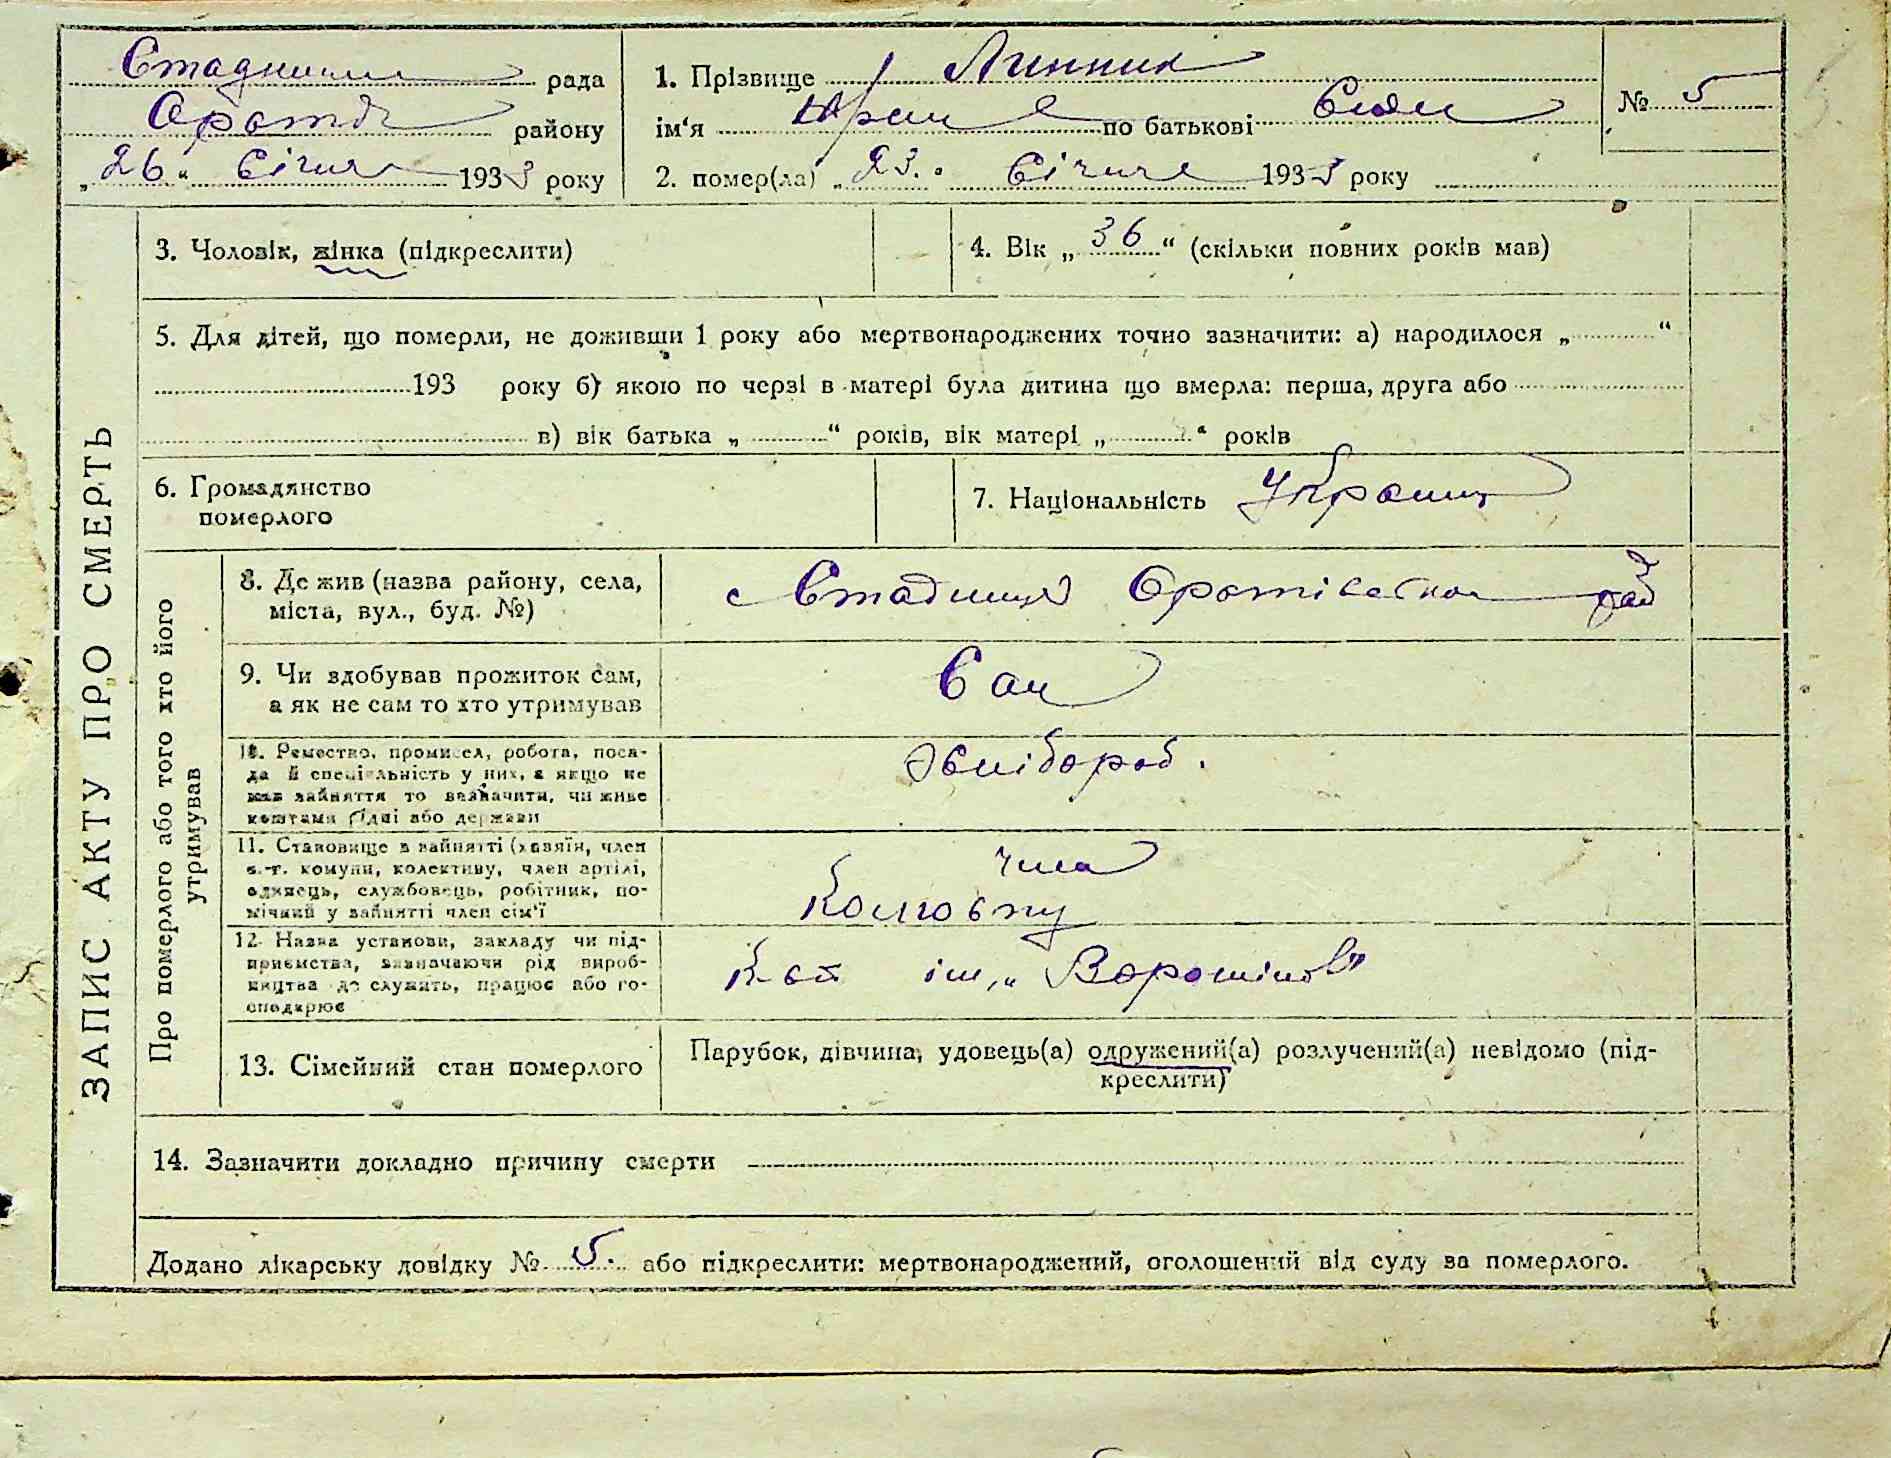 рада
району
„26“ Січня 1933 року
1. Прізвище Линник
ім‘я по батькові
2. помер(ла) „23.“ Січня 1933 року
№ 5
3. Чоловік, жінка (підкреслити)
4. Вік „36“ (скільки повних років мав)
5. Для дітей, що померли, не доживши 1 року або мертвонароджених точно зазначити: а) народилося „ “
193 року б) якою по черзі в матері була дитина що вмерла: перша, друга або
в) вік батька „ “ років, вік матері „ “ років
6. Громадянство
померлого
7. Національність Україн
ЗАПИС АКТУ ПРО СМЕРТЬ
Про померлого або того хто його
утримував
8. Де жив (назва району, села,
міста, вул., буд. №)
с Стадниця Оратівського рай
9. Чи здобував прожиток сам,
а як не сам то хто утримував
Сам
10. Ремество, промисел, робота, поса-
да й спеціяльність у них, а якщо не
мав зайняття то зазначити, чи живе
коштами рідні або держави
Хлібороб.
11. Становище в зайнятті (хазяїн, член
с.-г. комуни, колективу, член артілі,
одинець, службовець, робітник, по-
мічний у зайнятті член сім‘ї
член
Колгоспу
12. Назва установи, закладу чи під-
приємства, зазначаючи рід вироб-
ництва де служить, працює або го-
сподарює
К-сп ім. „Ворошілов”
13. Сімейний стан померлого
Парубок, дівчина, удовець(а) одружений(а) розлучений(а) невідомо (під-
креслити)
14. Зазначити докладно причину смерти
Додано лікарську довідку № 5. або підкреслити: мертвонароджений, оголошений від суду за померлого.